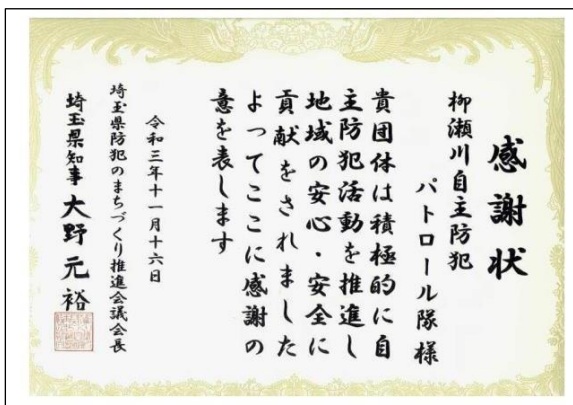 感謝状
柳瀬川自主防犯
パトロール隊様
貴団体は積極的に自
主防犯活動を推進し
地域の安心・安全に
貢献をされました
よってここに感謝の
意を表します
令和三年十一月十六日
埼玉県防犯のまちづくり推進会議会長
埼玉県知事 大野元裕